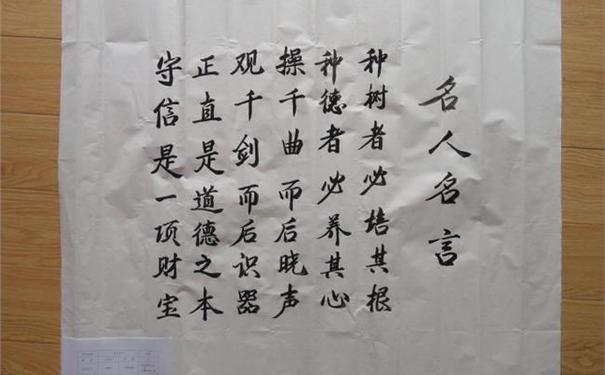 名人名言
种树者必培其根
种德者必养其心
操千曲而后晓声
观千剑而后识器
正直是道德之本
守信是一项财宝